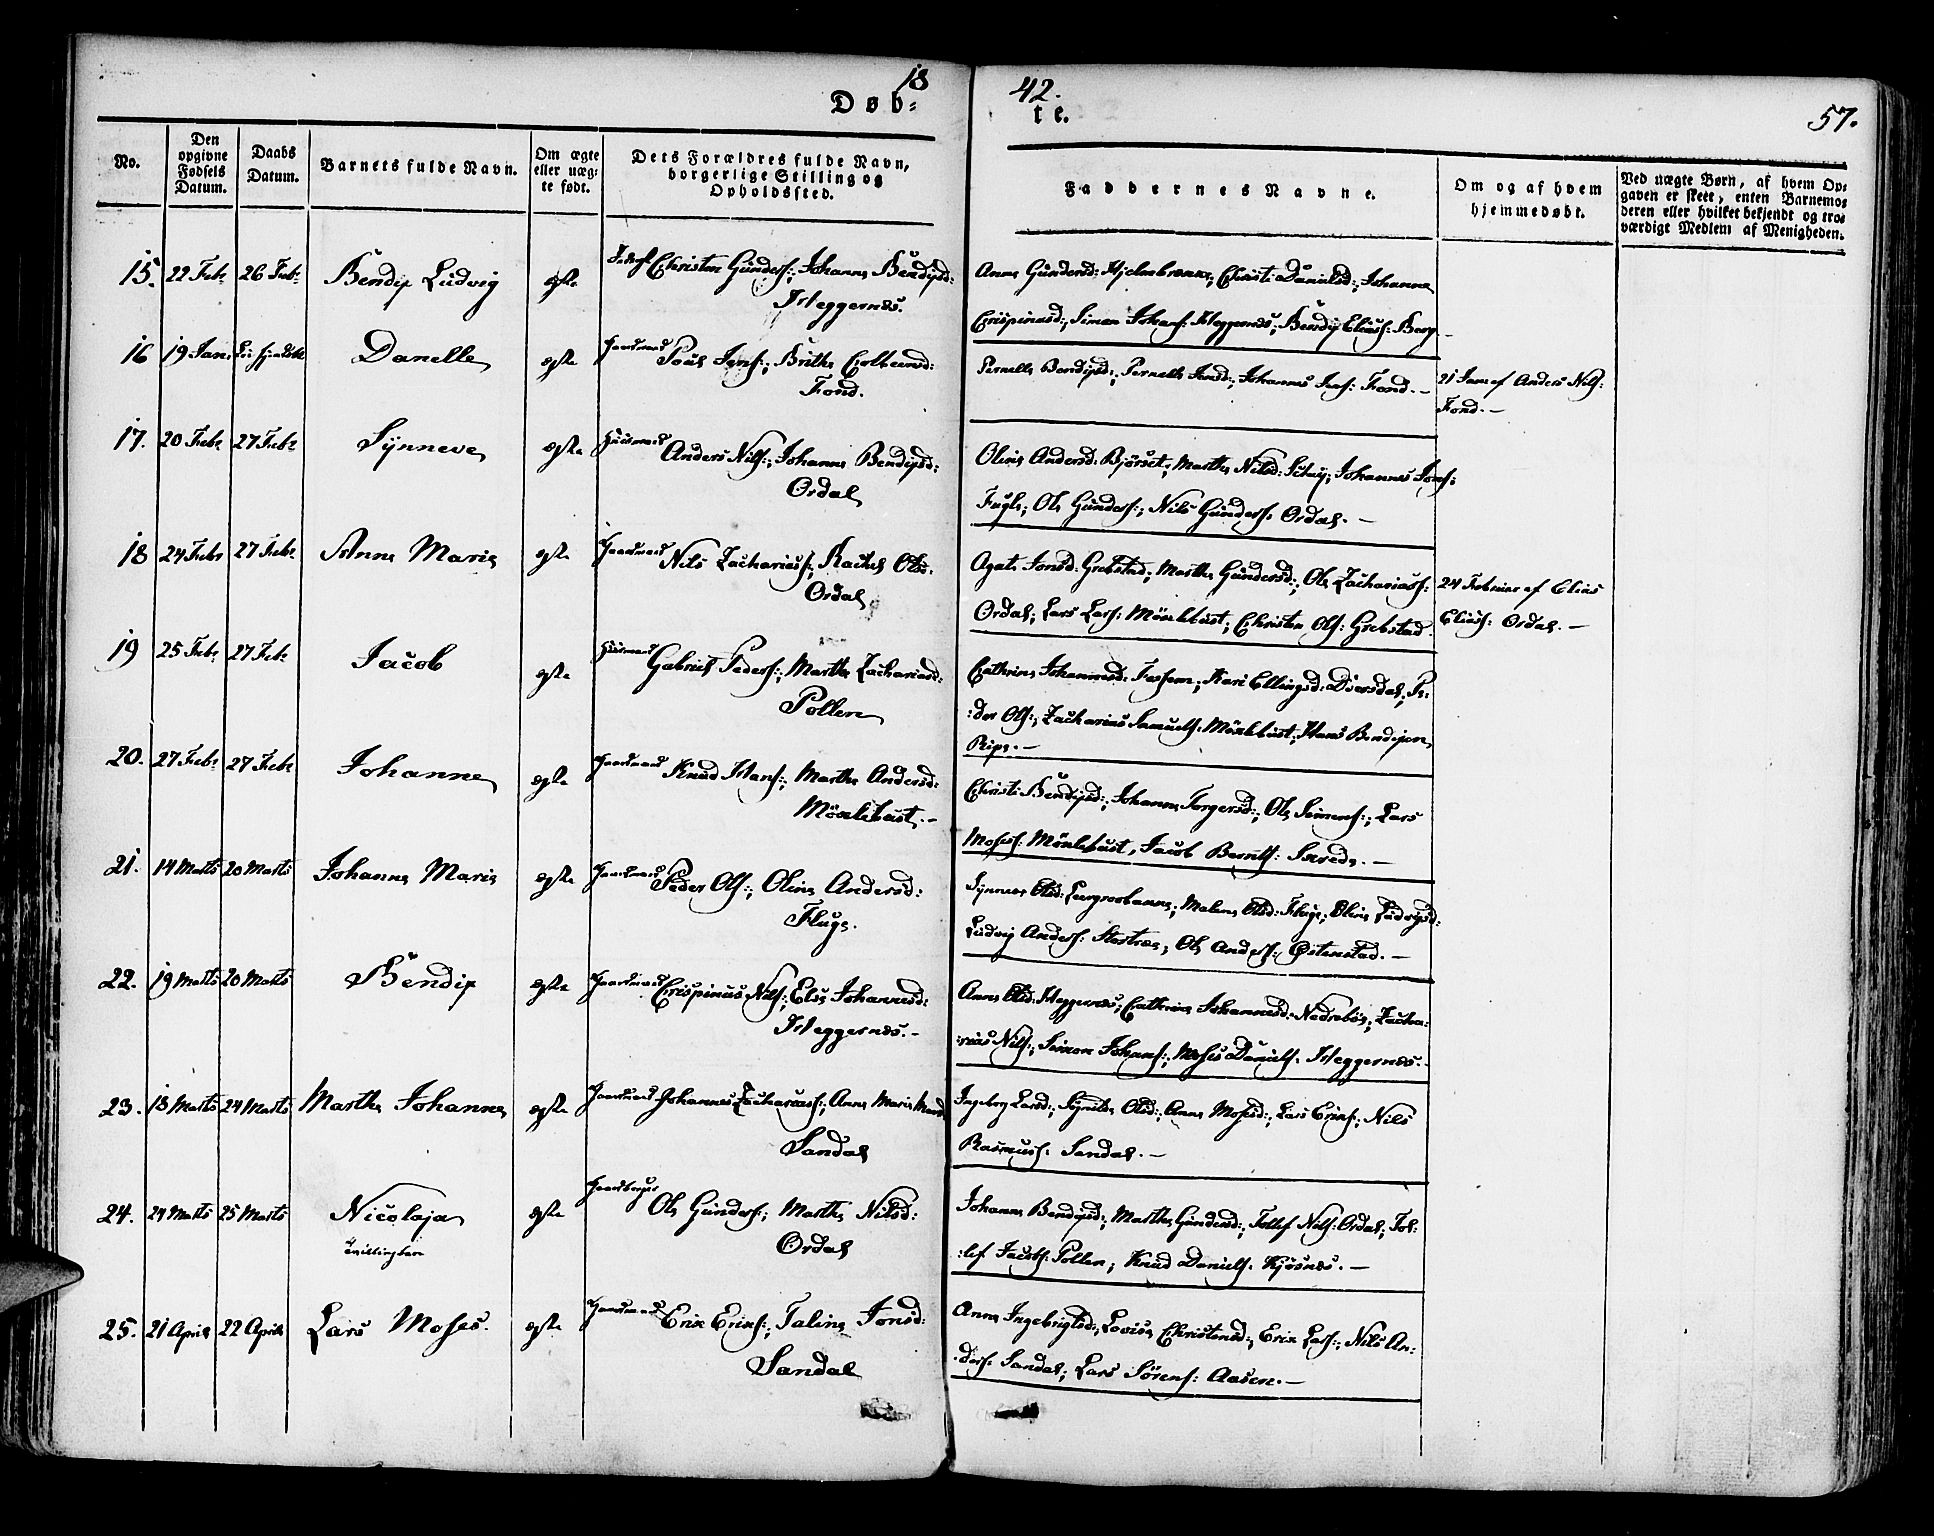 18
42.
Døb-
te.
57.
No.
Den opgivne Fødsels Datum.
Daabs Datum.
Barnets fulde Navn.
Om ægte eller uæg-te født.
Dets Forældres fulde Navn, borgerlige Stilling og Opholdssted.
Faddernes Navne.
Om og af hvem hjemmedøbt.
Ved uægte Børn, af hvem Op-gaven er skeet, enten Barnemo-deren eller hvilket bekjendt og tro-værdigt Medlem af Menigheden.
15. 22 Febr 26 Febr: Bendix Ludvig ægte Christen Gunders:, Johanne Bendixd:
Heggernæs.
Anne Gundersd: Hjelmbrække; Christi Danielsd:, Johanne
Crispinusd:, Simon Johans: Heggernæs; Bendix Eliass: Berg
16 19 Jan Danelle ægte Gaardmand Poul Jens:, Brithe Colbeensd:
Fond.
Pernelle Bendixd:, Pernelle Jensd:, Johannes Jens: Fond.—
21 Jan af Anders Nils:
Fond.—
17. 20 Febr 27 Febr Synneve ægte Huusmand Anders Nils:, Johanne Bendixd:
Ordal
Oline Andersd: Bjørset; Marthe Nilsd: ; Johannes Jons:
Ole Gunders:, Nils Gunders: Ordal.—
18 24 Febr 27 Febr Anne Marie ægte Gaardmand Nils Zachariass:, Rachel Olsd.
Ordal
Agate Jonsd: Grebstad; Marthe Gundersd:, Ole Zachariass:
Ordal; Lars Lars: Mönlebust; Christen Ols: Grebstad.
24 Februar af Elias
Eliass: Ordal.—
19 25 Febr 27 Febr Jacob ægte Huusmand Gabriel Peders:, Marthe Zachariasd:
Pollen
Cathrine Johannesd: ; Kari Ellingsd: ; Pe-
:der Ols:, Zacharias Samuels: Mönlebust; Hans Bendixen
Ripe.—
20. 27 Febr 27 Febr Johanne ægte Gaardmand Knud Hans:, Marthe Andersd:
Mönlebust.—
Christi Bendixd:, Johanne Torgersd:, Ole Simons:, Lars
Moses: Mönlebust, Jacob Bernts: .—
21. 14 Marts 20 Marts Johanne Marie ægte Gaardmand Peder Ols:, Oline Andersd:
Fluge.
Synneve Olsd: ; Malene Olsd: Fluge; Oline Ludvigsd:
Ludvig Anders: ; Ole Anders: Østenstad.—
22. 19 Marts 20 Marts Bendix ægte Gaardmand Crispinus Nils:, Elis Johannesd:
Heggernæs.—
Anne Olsd: Heggernæs; Cathrine Johannesd: Nedrebøe; Zacha-
:rias Nils:, Simon Johans:, Moses Daniels: Heggernæs.—
23. 13 Marts 24 Marts Marthe Johanne ægte Gaardmand Johannes Zachariass:, Anne Marie
Sandal
Ingeborg Larsd:, Olsd:, Anne Mosesd:, Lars Eriks:, Nils
Rasmuss: Sandal.—
24. 24 Marts 25 Marts Nicolaja
Tvillingbarn
ægte Ole Gunders:, Marthe Nilsd:
Ordal
Johanne Bendixd:, Marthe Gundersd:, Tollef Nils: Ordal, Tol-
:lef Jacobs: Pollen, Knud Daniels: Kjøsnæs.—
25. 21 April 22 April Lars Moses. ægte Gaardmand Erik Eriks:, Taline Jonsd:
Sandal
Anne Ingebrigtsd:, Lovise Christensd:, Erik Lars:, Nils An-
:ders: Sandal, Lars Sörens: Aasen.—